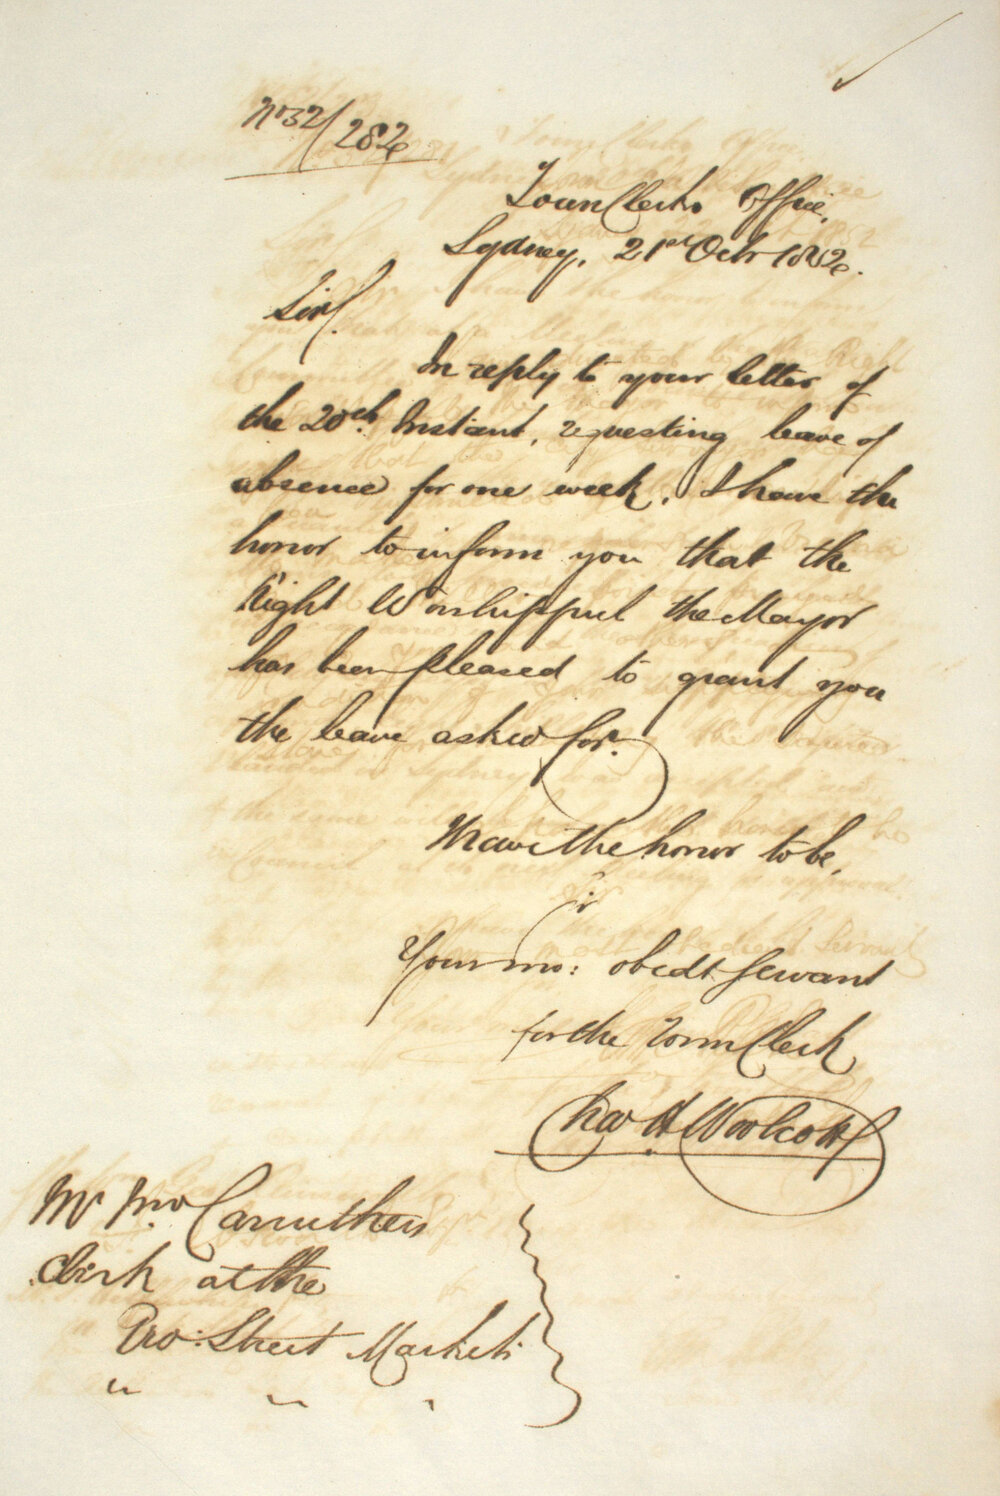 No 52/282
Town Clerks Office,
Sydney, 21st Octr 1852.
Sir/
In reply to your letter of
the 20th. Instant, requesting leave of
absence for one week, I have the
honor to inform you that the
Right Worshipful the Mayor
has been pleased to grant you
the leave asked for.
I have the honor to be,
Sir
Your mo: obedt Servant
for the Town Clerk
Chas H Woolcott
Mr Jno Carruthers
Clerk at the
Geo: Street Markets
" " "